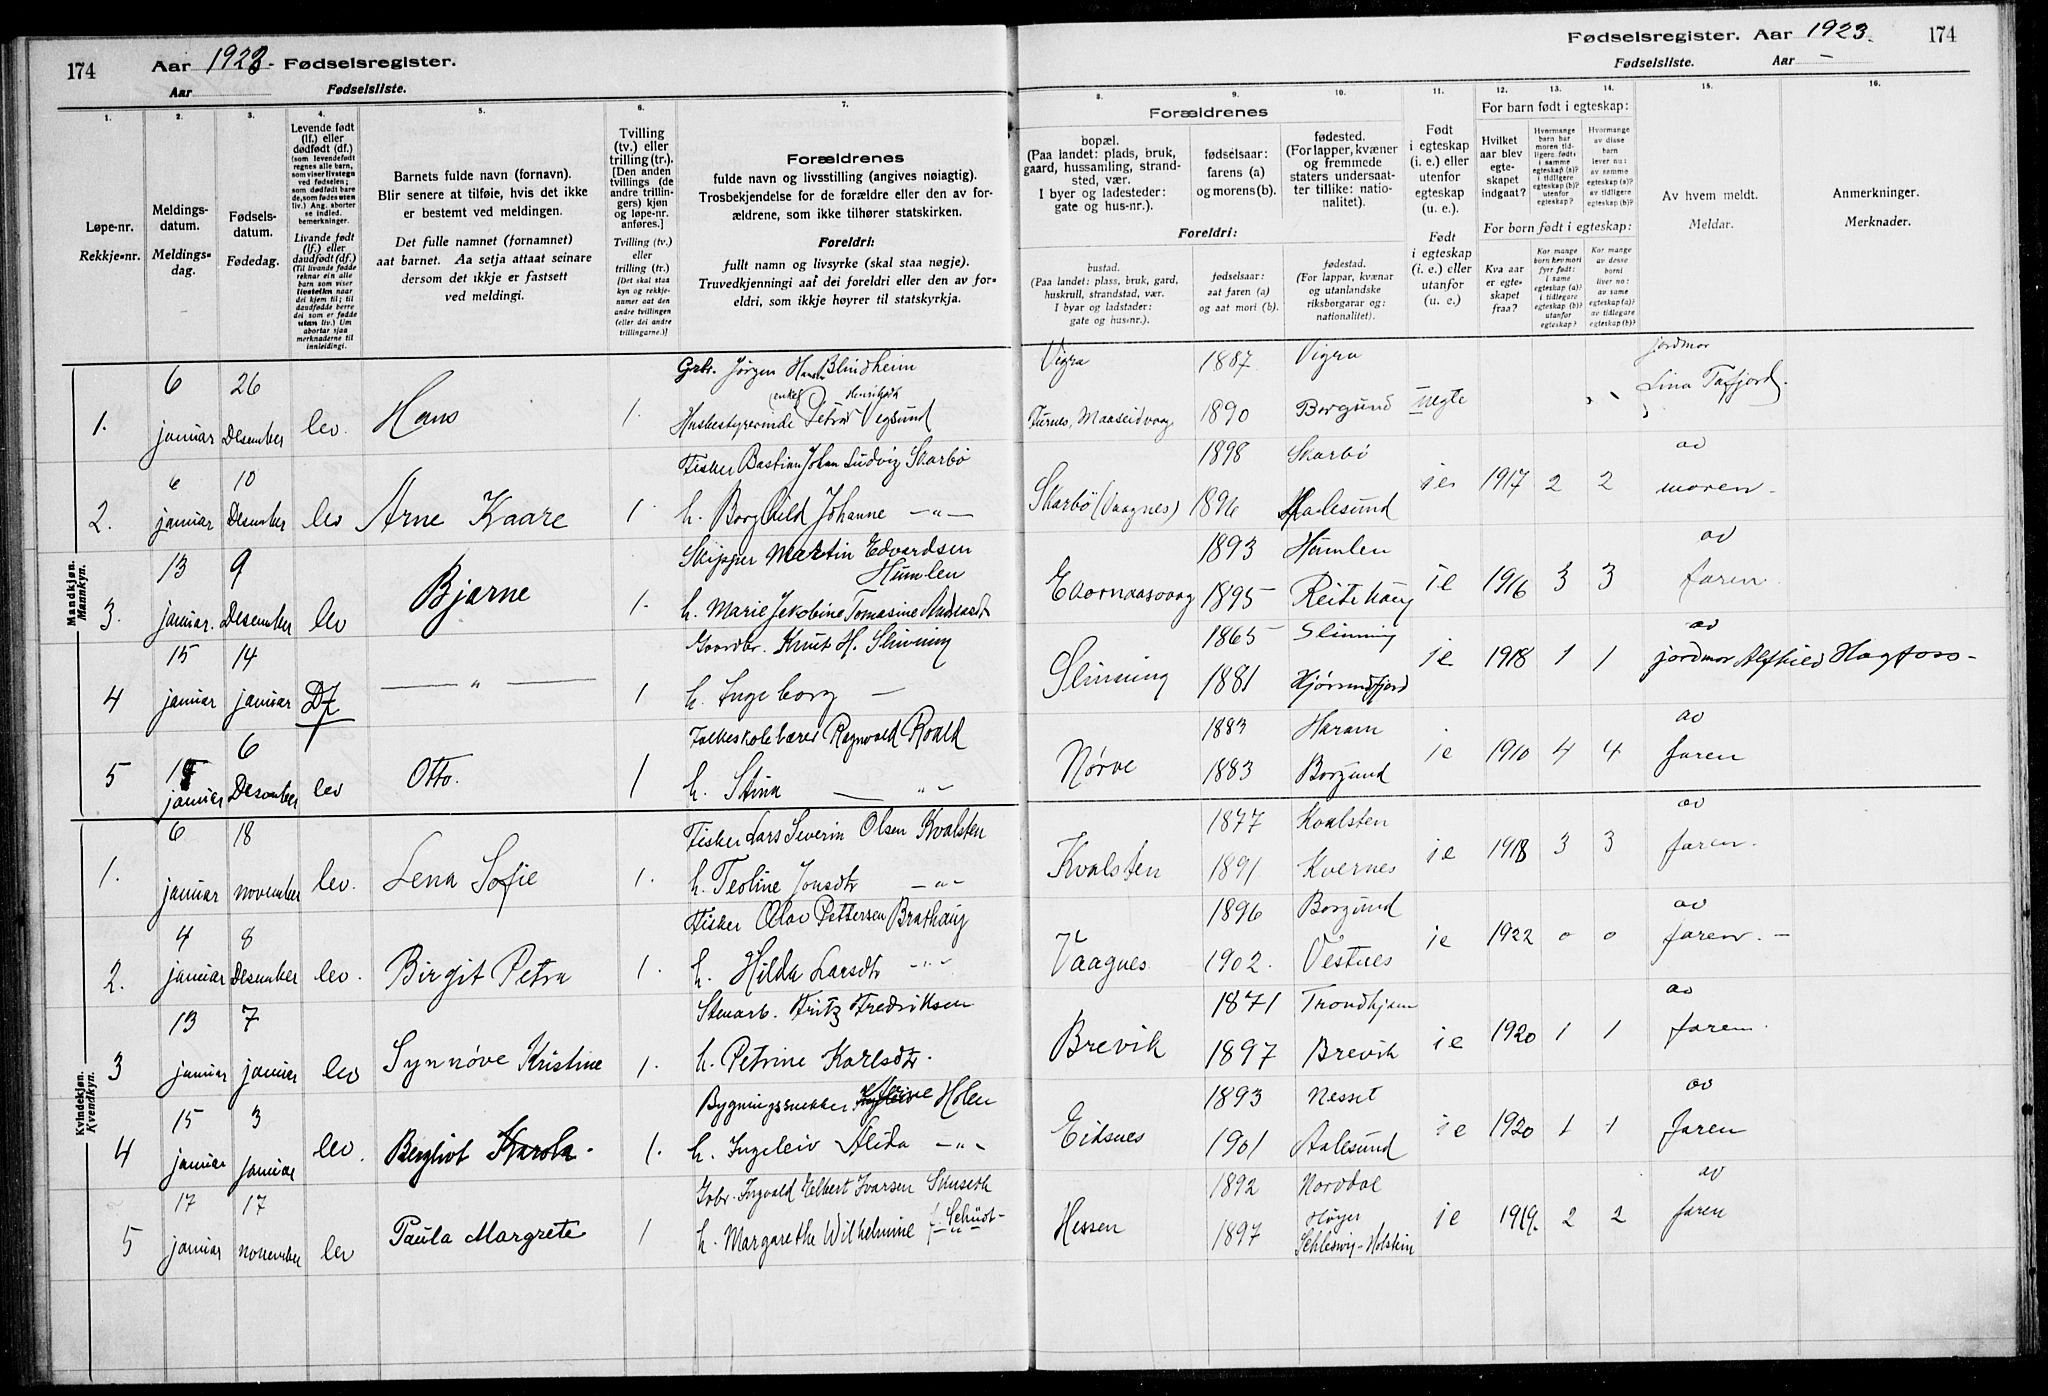 174
Aar 1923. Fødselsregister.
Aar Fødselsliste.
1.
2.
3.
4.
5.
6.
7.
Løpe-nr.
Rekkje-nr.
Meldings-
datum.
Meldings-
dag.
Fødsels-
datum.
Fødedag.
Levende født
(lf.) eller
dødfødt (df.)
(som levendefødt
regnes alle barn,
som viser livstegn
ved fødselen;
som dødfødt bare
de, som fødes uten
liv.) Ang. aborter
se indled.
bemerkninger.
Livande født
(lf.) eller
daudfødt (df.)
(Til livande fødde
reknar ein alle
barn som viser
livsteikn naar
dei kjem til; til
daudfødde berre
dei som er fødde
utan liv.) Um
abortar sjaa
merknaderne til
innleidingi.
Barnets fulde navn (fornavn).
Blir senere at tilføie, hvis det ikke
er bestemt ved meldingen.
Det fulle namnet (fornamnet)
aat barnet. Aa setja attaat seinare
dersom det ikkje er fastsett
ved meldingi.
Tvilling
(tv.) eller
trilling (tr.).
[Den anden
tvillings (de
andre trillin-
gers) kjøn
og løpe-nr.
anføres.]
Tvilling (tv.)
eller
trilling (tr.)
[Det skal staa
kyn og rekkje-
numer aat den
andre tvillingen
(eller dei andre
trillingarne.)]
Forældrenes
fulde navn og livsstilling (angives nøiagtig).
Trosbekjendelse for de forældre eller den av for-
ældrene, som ikke tilhører statskirken.
Foreldri:
fullt namn og livsyrke (skal staa nøgje).
Truvedkjenningi aat dei foreldri eller den av for-
eldri, som ikkje høyrer til statskyrkja.
Mandkjøn.
Mannkyn.
6 26 Grbr. Jørgen Hansen Blindheim
enke Henriksdtr
1. januar Desember lev. Hans 1. Husbestyrerinde Petra Vegsund
6 10 Fisker Bastian Johan Ludvig Skarbø
2. januar Desember lev Arne Kaare 1. h. Borghild Johanne —"—
13 9 Skipper Martin Edvardsen
Humlen
3. januar. Desember lev Bjarne 1. h. Marie Jekobine Tomasine
15 14 Gaardbr. Knut H. Slinning
4 januar januar Df — " — 1 h. Ingeborg —
6 Folkeskolelærer Ragnvald Roald
5 januar Desember lev Otto. 1 h. Stina — "-
Kvindekjøn.
Kvendkyn.
6 18 Fisker Lars Severin Olsen Kvalsten
1. januar november lev. Lena Sofie 1. h. Teoline Jonsdtr —"—
4 8 Fisker Olav Pettersen Brathaug
2. januar Desember lev. Birgit Petra 1. h. Hilda Larsdtr —"—
13 7 Stenarb. Fritz Fredriksen
3 januar januar lev Synnøve Kristine 1. h. Petrine Karlsdtr.
15 3 Bygningssnekker Holen
4 januar januar lev. Bergliot Karola. 1. h. Ingeleiv Alida —"—
17 17 Gbr. Ingvald Elbert Ivarsen
5 januar november lev Paula Margrete 1 h. Margarethe Wilhelmine f. Schüdt
Fødselsregister. Aar 1923. 174
Fødselsliste. Aar —
8.
9.
10.
11.
12.
13.
14.
15.
16.
Forældrenes
bopæl.
(Paa landet: plads, bruk,
gaard, hussamling, strand-
sted, vær.
I byer og ladesteder:
gate og hus-nr.).
fødselsaar:
farens (a)
og morens (b).
fødested.
(For lapper, kvæner
og fremmede
staters undersaat-
ter tillike: natio-
nalitet).
Foreldri:
bustad.
(Paa landet: plass, bruk, gard,
huskrull, strandstad, vær.
I byar og ladstader:
gate og hus-nr.).
fødselsaar:
aat faren (a)
og aat mori (b).
fødestad.
(For lappar, kvænar
og utanlandske
riksborgarar og:
nationalitet).
Født
i egteskap
(i. e.) eller
utenfor
egteskap
(u. e.).
Født
i egteskap
(i. e.) eller
utanfor
(u. e.).
For barn født i egteskap:
Hvilket
aar blev
egte-
skapet
indgaat?
Hvormange
barn har
moren tid-
ligere født:
i samme
egteskap (a)?
i tidligere
egteskap (b)?
utenfor
egteskap?
Hvormange
av disse
barn
lever nu:
av samme
egteskap (a)?
av tidligere
egteskap (b)?
For born født i egteskap:
Kva aar
er egte-
skapet
fraa?
Kor mange
born hev mori
fyrr født:
i same
egteskap (a)?
i tidlegare
egteskap (b)?
utanfor
egteskap?
Kor mange
av desse
borni
liver no:
av same
egteskap (a)?
av tidlegare
egteskap (b)?
Av hvem meldt.
Meldar.
Anmerkninger.
Merknader.
Vigra 1887 Vigra jordmor
Furnes, Maaseidvaag 1890 Borgund uegte Lina Tafjord.
1898 Skarbø av
Skarbø (Vaagnes) 1896 Aalesund ie 1917 2 2 moren
1893 Humlen av
1895 Reitehaug ie 1916 3 3 faren
1865 Slinning av
Slinning 1881 Hjørundfjord ie 1918 1 1 jordmor Alfhild Hagfoss
1883 Haram av
Nørve 1883 Borgund ie 1910 4 4 faren
1877 Kvalsten av
Kvalsten 1891 Kvernes ie 1918 3 3 faren.
1896 Borgund av
Vaagnes 1902. Vestnes ie 1922 0 0 faren. —
1871 Trondhjem av
Brevik 1897 Brevik ie 1920 1 1 faren.
1893 Nesset av
Eidsnes 1901 Aalesund ie 1920 1 1 faren
1892 Norddal av
Hessen 1897 Høyer ie 1919. 2 2 faren
Schleswig-Holstein